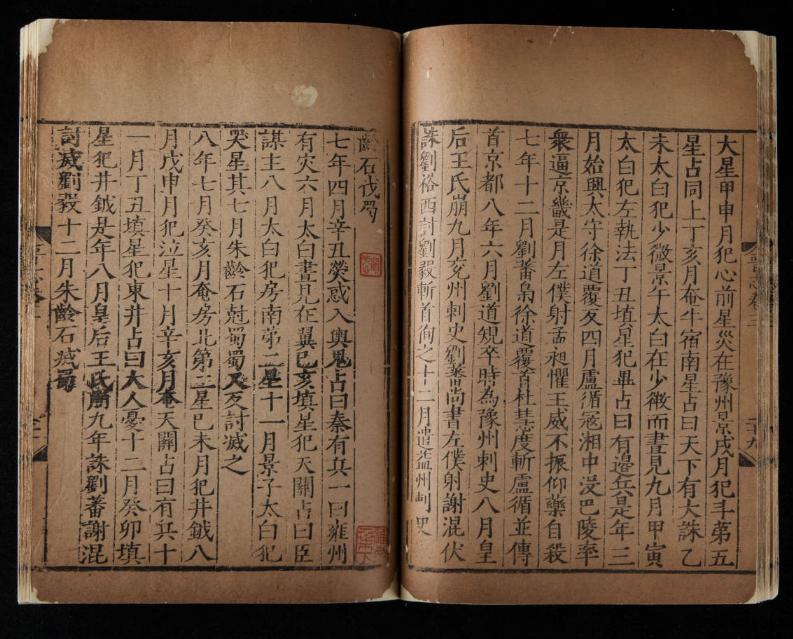 大星甲申月犯心前星災在豫州景戌月犯斗第五
星占同上丁亥月奄牛宿南星占曰天下有大誅乙
未太白犯少微景午太白在少微而晝見九月甲寅
太白犯左執法丁丑填星犯畢占曰有邊兵是年三
月始興太守徐道覆反四月盧循寇湘中沒巴陵率
衆逼京畿是月左僕射孟昶懼王威不振仰藥自殺
七年十二月劉蕃梟徐道覆首杜慧度斬盧循並傳
首京都八年六月劉道規卒時為豫州刺史八月皇
后王氏崩九月兗州刺史劉蕃尚書左僕射謝混伏
誅劉裕西討劉毅斬首徇之十二月遣益州刺史
齡石伐蜀
七年四月辛丑熒惑入輿鬼占曰秦有兵一曰雍州
有灾六月太白晝見在翼己亥填星犯天關占曰臣
謀主八月太白犯房南第二星十一月景子太白犯
哭星其七月朱齡石尅蜀蜀又反討滅之
八年七月癸亥月奄房北第二星己未月犯井鉞八
月戊申月犯泣星十月辛亥月奄天關占曰有兵十
一月丁丑填星犯東井占曰大人憂十二月癸卯填
星犯井鉞是年八月皇后王氏崩九年誅劉蕃謝混
討滅劉毅十二月朱齡石滅蜀